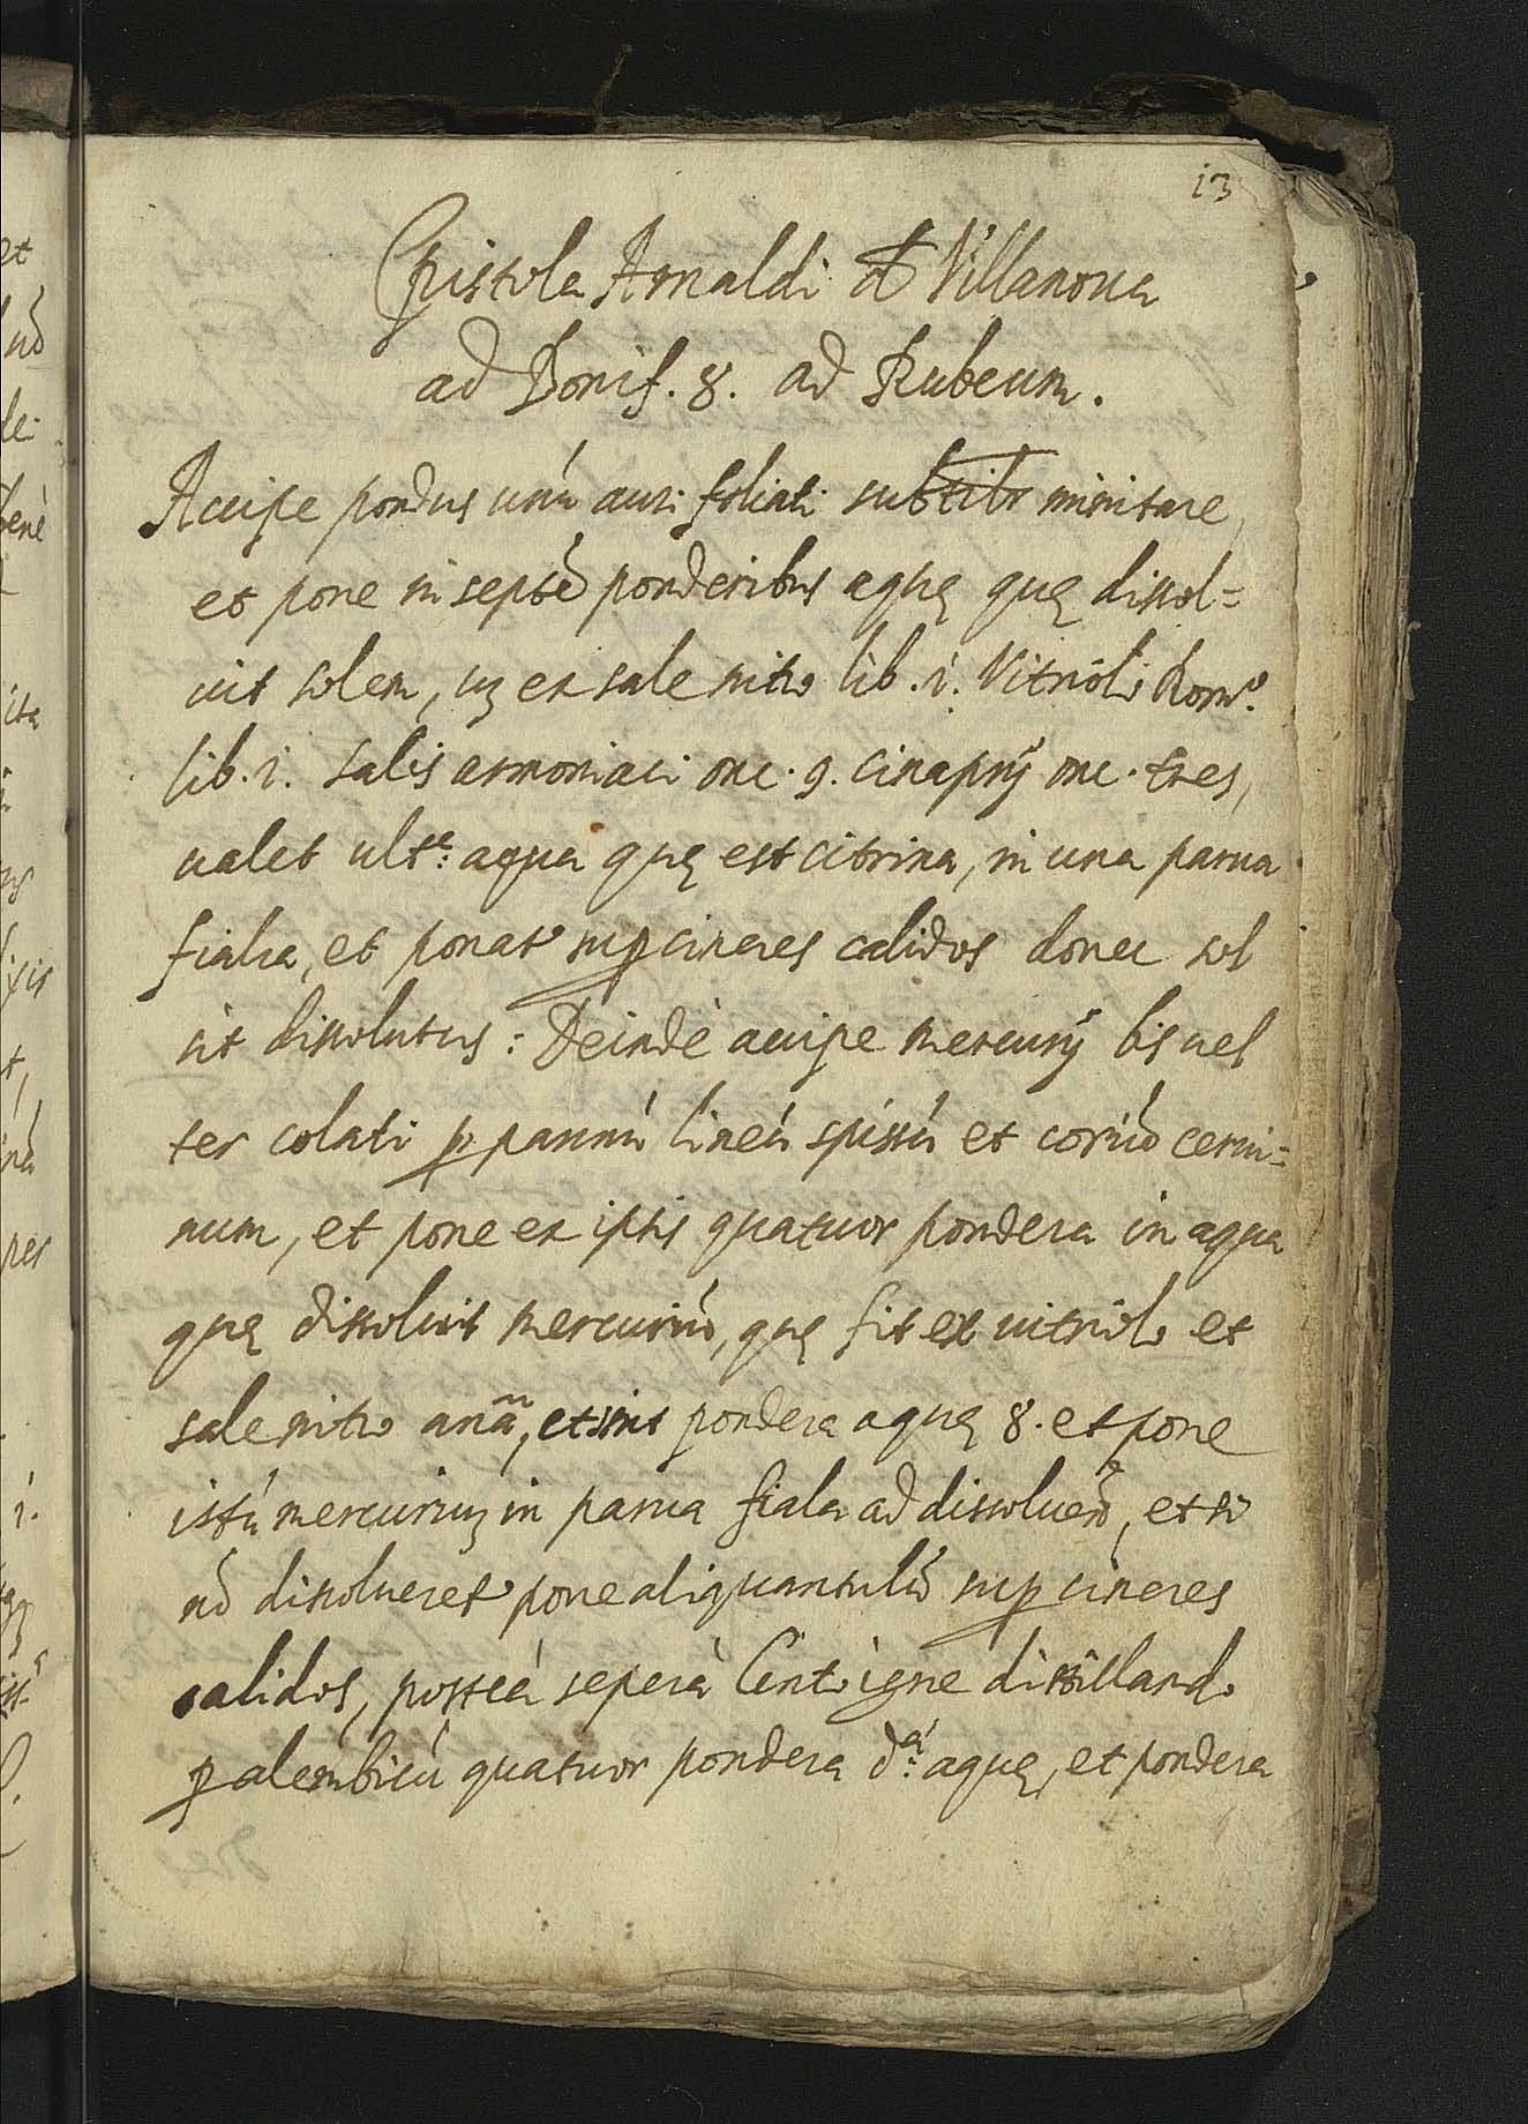 13
Epistola Arnaldi de Villanoua
ad Bonif. 8. ad Rubeum.
Accipe pondus unú auri foliati subtilr minitare,
et pone in septē ponderibus aquę quę dissol=
uit solem, uz ex sale nitro lib. i. Vitrioli Romⁱ.
lib. i. salis armoniaci onc. 9. cinaprij onc. tres,
ualet ultᵉ: aqua quę est citrina, in una parua
fiala, et ponat' sup cineres calidos donec sol
sit dissolutus: Deindè accipe mercurij bis uel
ter colati p pannú lineú spissú et coriũ cerui=
num, et pone ex ipsis quatuor pondera in aqua
quę dissoluit mercuriũ, quę fit ex uitriolo et
sale nitro anã, et sint pondera aquę 8. et pone
istú mercuriuz in parua fiala ad dissoluendũ, et si
nõ dissolueret' pone aliquantulũ sup cineres
calidos, posteà separà lento igne distillando
p alembicú quatuor pondera dᵃ: aquę, et pondera